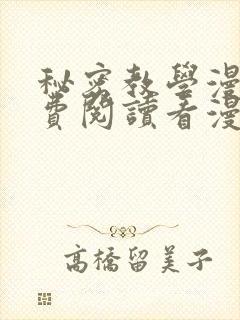 秘密教學漫
費閱讀看漫
高橋留美子